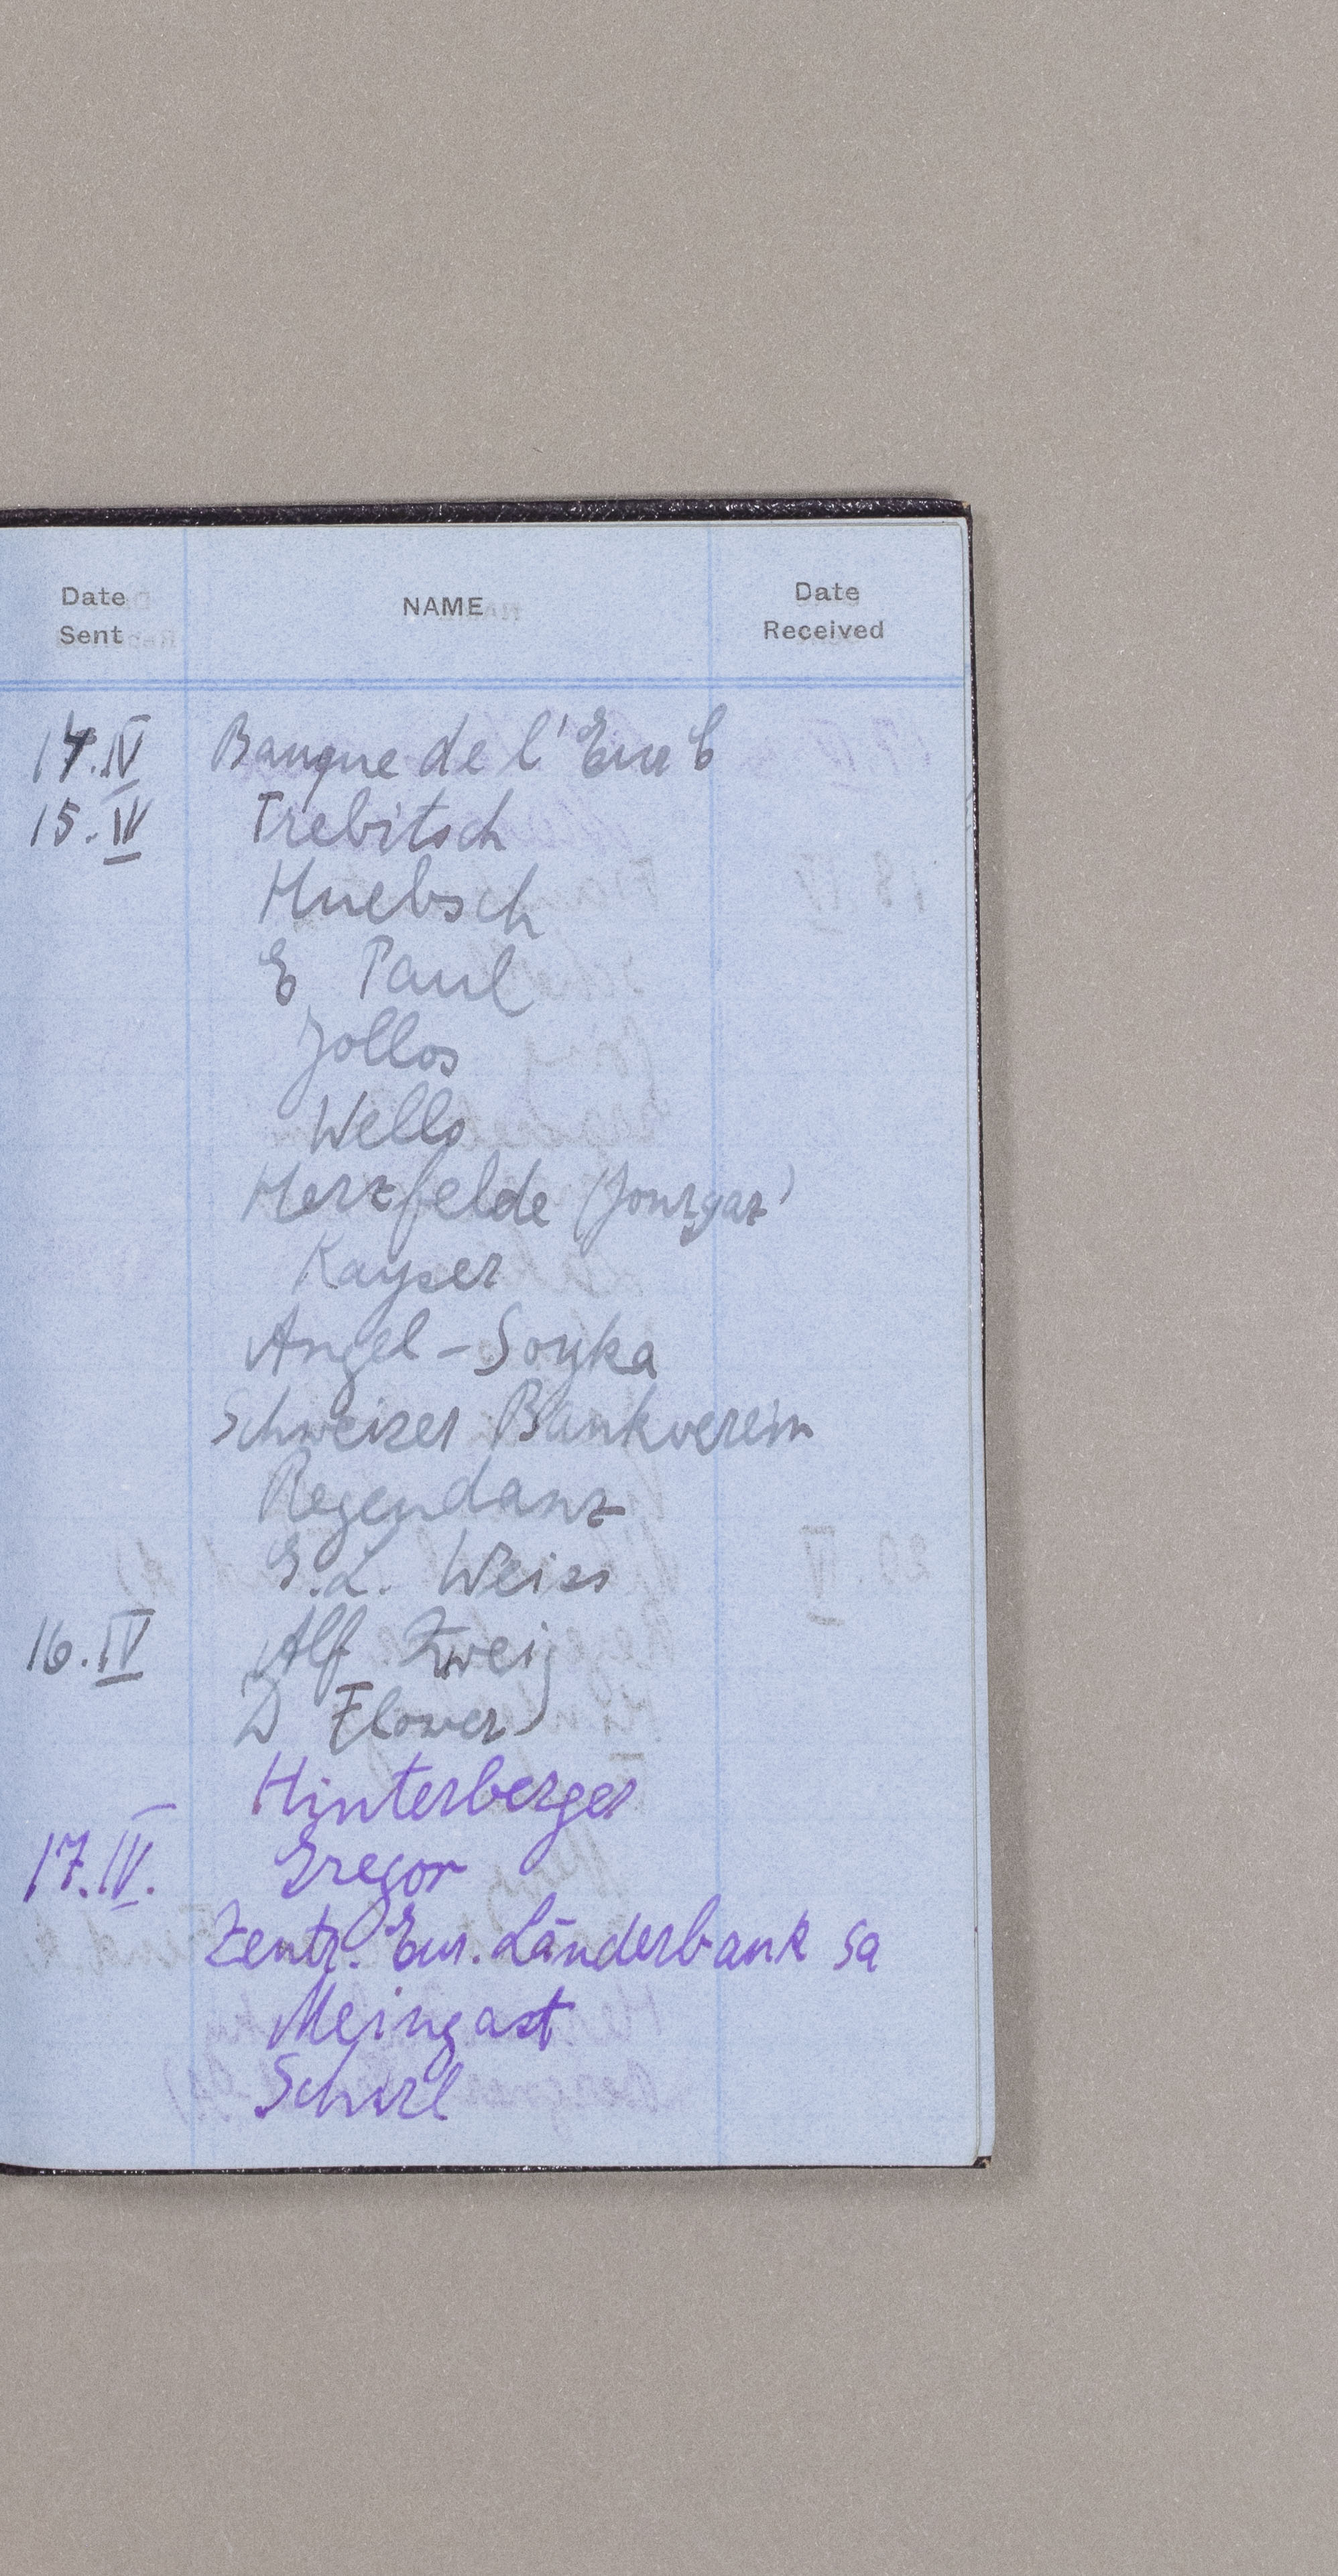 Date Sent NAME Date Received
14.IV Banque de l'Eur C
15.IV Trebitsch
Huebsch
E Paul
Jollos
Wells
Herzfelde (Jourgaz)
Kayser
Angel-Soyka
Schweizer Bankverein
Regendanz
E.L. Weiss
16.IV Alf Zweig
D Flower
Hinterberger
17.IV. Gregor
Zentr. Eur. Länderbank Sa
Meingast
Schirl